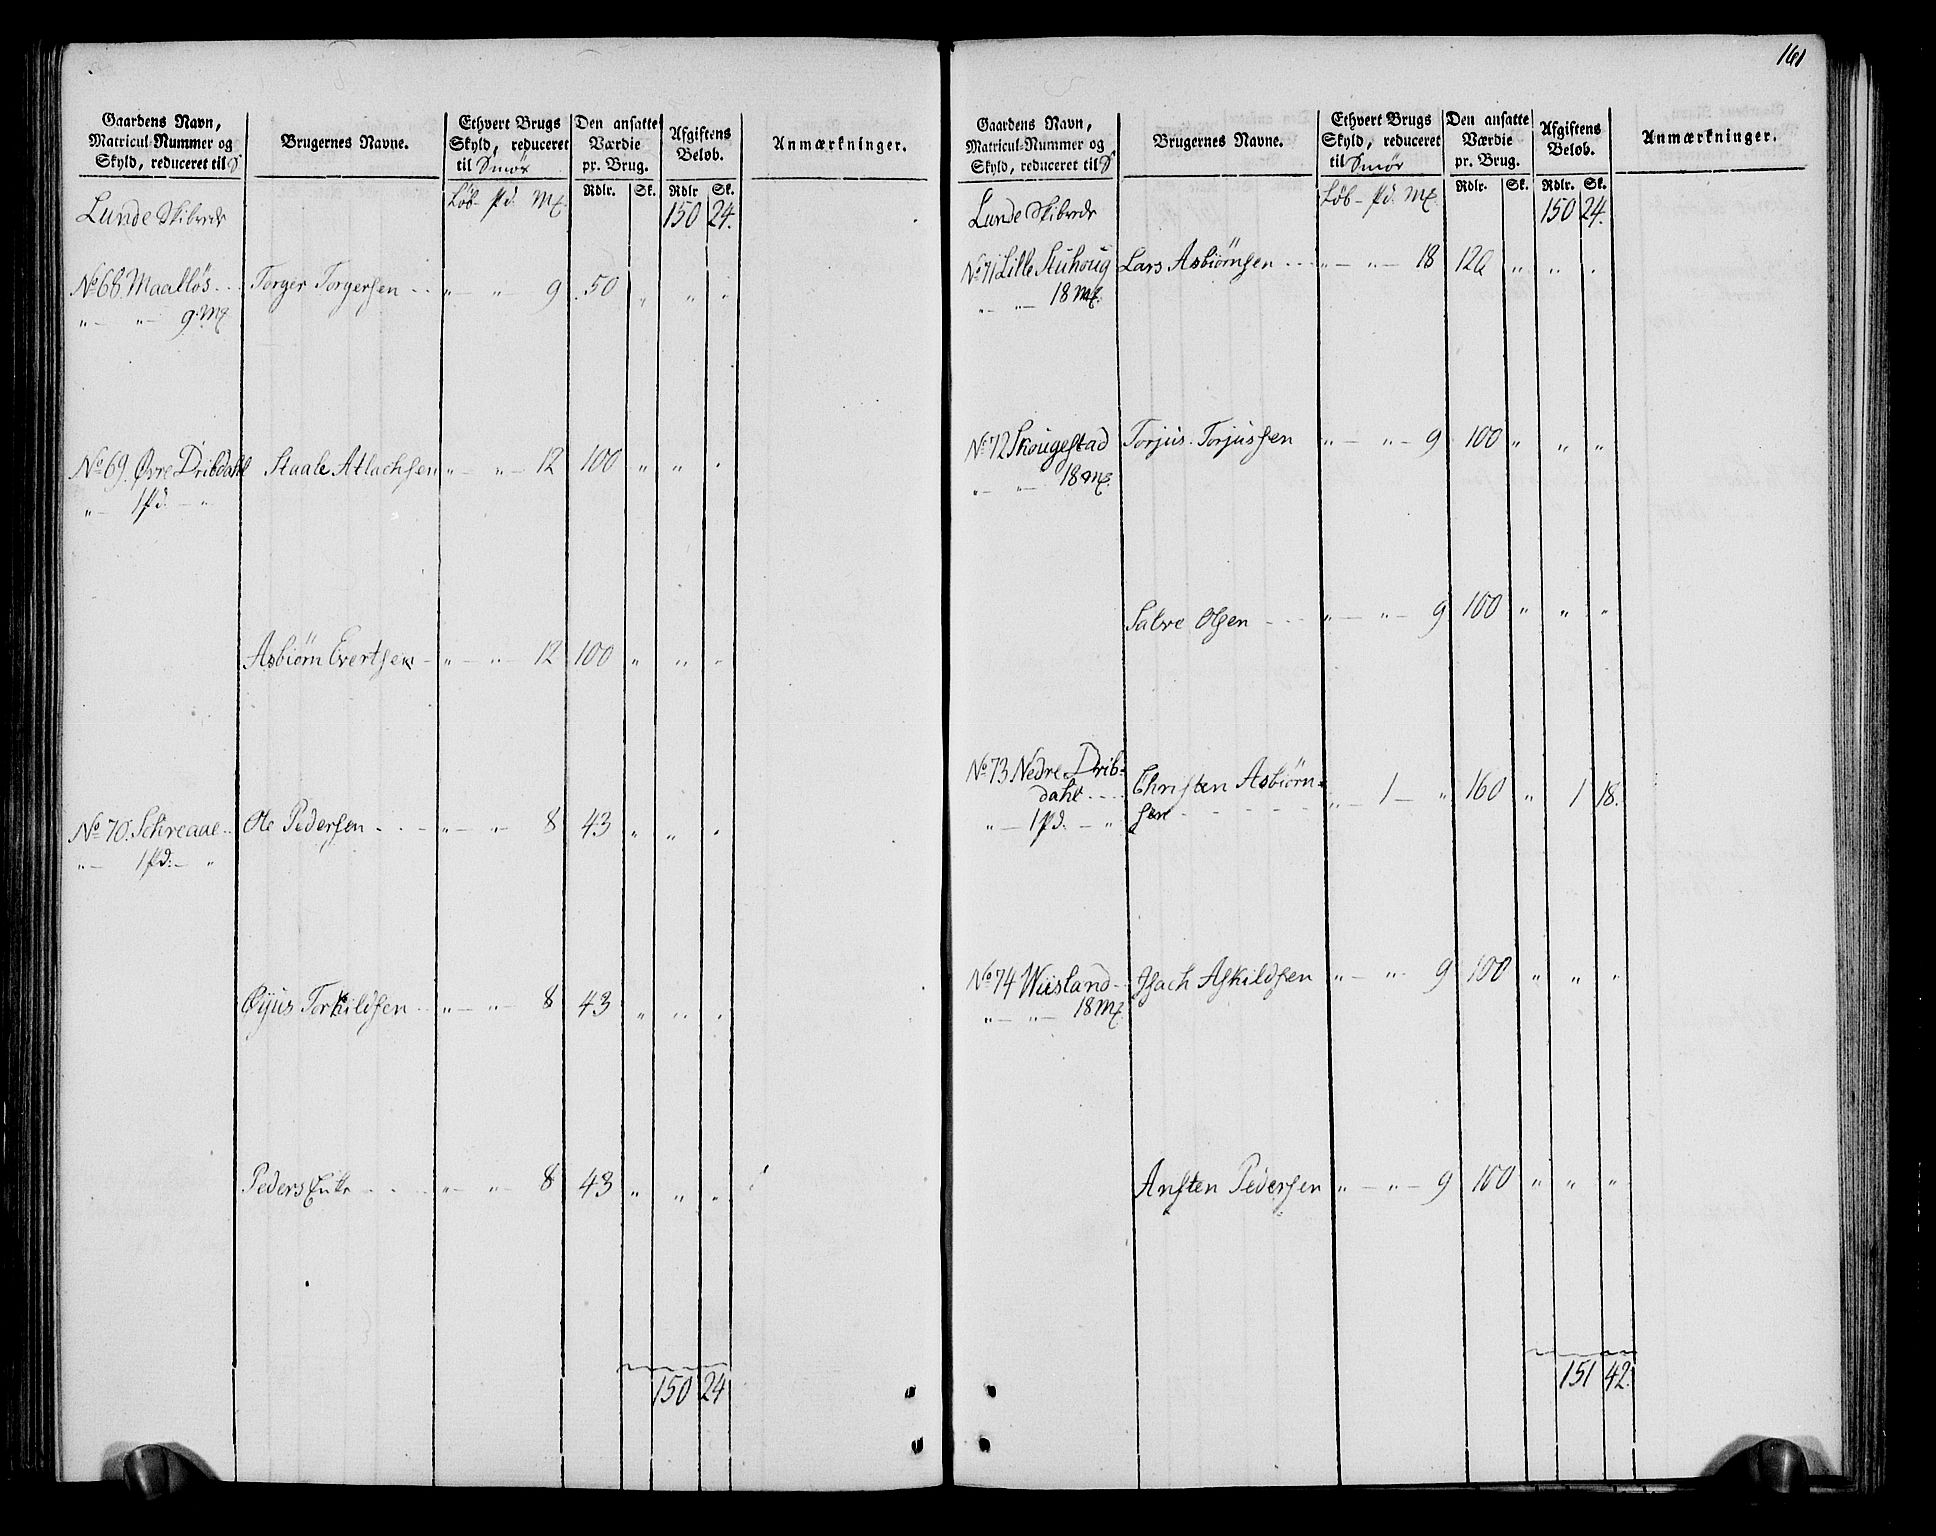 Gaardens Navn,
Matricul-Nummer og
Skyld, reduceret til S
Brugernes Navne.
Ethvert Brugs
Skyld, reduceret
til Smør
Den ansatte
Værdie
pr. Brug.
Afgiftens
Beløb.
Anmærkninger.
Løb - Pd. Mk.
Rdlr. Sk. Rdlr Sk.
Lunde Skibrede 150 24.
No 68. Maalløs . . Torger Torgersen - - " - " - 9 50 " " "
" - " - 9 Mk
No 69. Øvre Dribdahl Staale Atlachsen " - " - 12 100 " " "
" - 1 Pd. - "
Asbiørn Evertsen - " - " - 12 100 " " "
No 70. Schreaae . . Ole Pedersen - - - " - " - 8 43 " " "
" - 1 Pd. - "
Torkildsen - - " - " - 8 43 " " "
Peders Enke - - - " - " - 8 43 " " "
150 24
161
Gaardens Navn,
Matricul-Nummer og
Skyld, reduceret til S
Brugernes Navne.
Ethvert Brugs
Skyld, reduceret
til Smør
Den ansatte
Værdie
pr. Brug.
Afgiftens
Beløb.
Anmærkninger.
Løb - Pd. Mk.
Rdlr. Sk. Rdlr. Sk.
Lunde Skibrede 150 24.
No 71 Lille Lars Asbiørnsen - - " - " - 18 " " "
" - " - 18 Mk.
No 72 Skougestad Torjus Torjussen " - " - 9 100 " " "
" - " - 18 Mk.
Salve Olsen - - - " - " - 9 100 " " "
No 73 Nedre Drib=
dahl . . . Christen Asbiørn=
" - 1 Pd. - " sen - - - - " - 1 - " 160 " 1 18.
No 74 Wiisland - Isach Askildsen " - " - 9 100 " " "
" - " - 18 Mk
Ansten Pedersen " - " - 9 100 " " "
151 42.